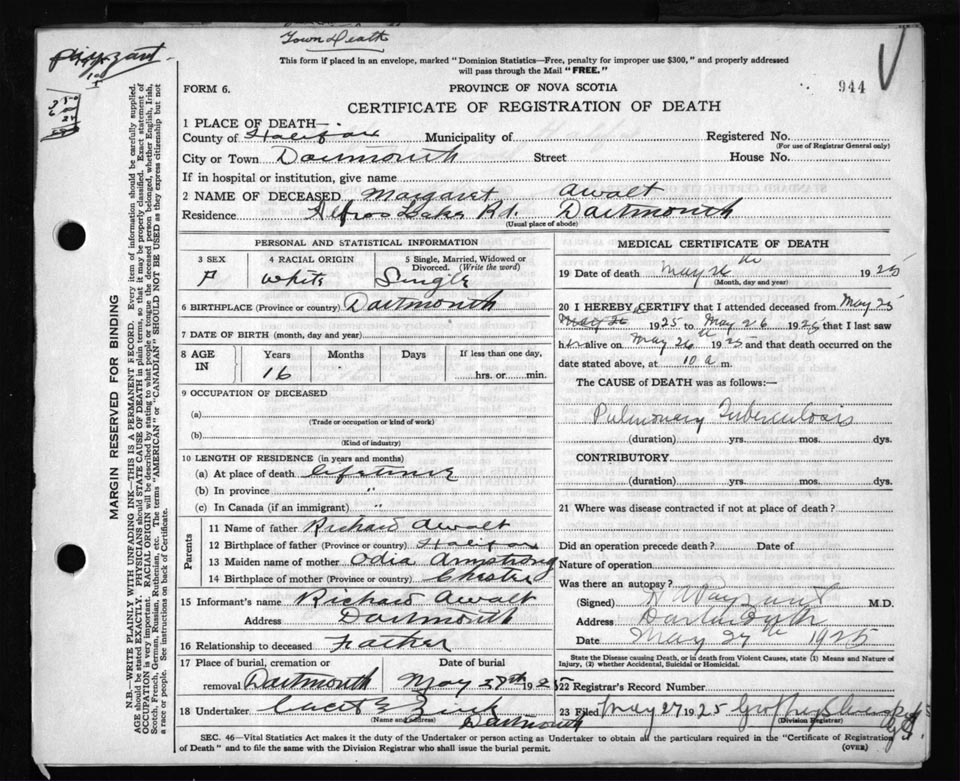 Town Death
This form if placed in an envelope, marked "Dominion Statistics—Free, penalty for improper use $300," and properly addressed
will pass through the Mail "FREE."
FORM 6.
PROVINCE OF NOVA SCOTIA
944
CERTIFICATE OF REGISTRATION OF DEATH
1 PLACE OF DEATH—
County of Halifax Municipality of Registered No.
(For use of Registrar General only)
City or Town Dartmouth Street House No.
If in hospital or institution, give name
2 NAME OF DECEASED Margaret Awalt
Residence Lake Rd. Dartmouth
(Usual place of abode)
PERSONAL AND STATISTICAL INFORMATION
3 SEX
F
4 RACIAL ORIGIN
White
5 Single, Married, Widowed or
Divorced. (Write the word)
Single
6 BIRTHPLACE (Province or country) Dartmouth
7 DATE OF BIRTH (month, day and year)
8 AGE
IN
Years Months Days If less than one day,
16 hrs. or min.
9 OCCUPATION OF DECEASED
(a)
(Trade or occupation or kind of work)
(b)
(Kind of industry)
10 LENGTH OF RESIDENCE (in years and months)
(a) At place of death lifetime
(b) In province "
(c) In Canada (if an immigrant) "
Parents
11 Name of father Richard Awalt
12 Birthplace of father (Province or country) Halifax
13 Maiden name of mother Odia Armstrong
14 Birthplace of mother (Province or country) Chester
15 Informant's name Richard Awalt
Address Dartmouth
16 Relationship to deceased Father
17 Place of burial, cremation or Date of burial
removal Dartmouth May 1925
18 Undertaker Zink
(Name and address) Dartmouth
MEDICAL CERTIFICATE OF DEATH
19 Date of death May 26th 1925
(Month, day and year)
20 I HEREBY CERTIFY that I attended deceased from May 25
May 26 1925 to May 26 1925 that I last saw
her alive on May 26th 1925 and that death occurred on the
date stated above, at 10 a m.
The CAUSE of DEATH was as follows:—
Pulmonary Tuberculosis
(duration) yrs. mos. dys.
CONTRIBUTORY.
(duration) yrs. mos. dys.
21 Where was disease contracted if not at place of death?
Did an operation precede death? Date of
Nature of operation
Was there an autopsy?
(Signed) Payzant M.D.
Address
Date May 27th 1925
State the Disease causing Death, or in death from Violent Causes, state (1) Means and Nature of
Injury, (2) whether Accidental, Suicidal or Homicidal.
22 Registrar's Record Number
23 Filed May 27 1925
(Division Registrar)
SEC. 46—Vital Statistics Act makes it the duty of the Undertaker or person acting as Undertaker to obtain all the particulars required in the "Certificate of Registration
of Death" and to file the same with the Division Registrar who shall issue the burial permit.
(OVER)
MARGIN RESERVED FOR BINDING
N.B.—WRITE PLAINLY WITH UNFADING INK—THIS IS A PERMANENT RECORD. Every item of information should be carefully supplied.
AGE should be stated EXACTLY. PHYSICIANS should STATE CAUSE OF DEATH in plain terms, so that it may be properly classified. Exact statement of
OCCUPATION is very important. RACIAL ORIGIN will be described by stating to what people or tongue the deceased person belonged, whether English, Irish,
Scotch, French, German, Russian, Ruthenian, etc. The terms "AMERICAN" or "CANADIAN" SHOULD NOT BE USED as they express citizenship but not
a race or people. See instructions on back of Certificate.